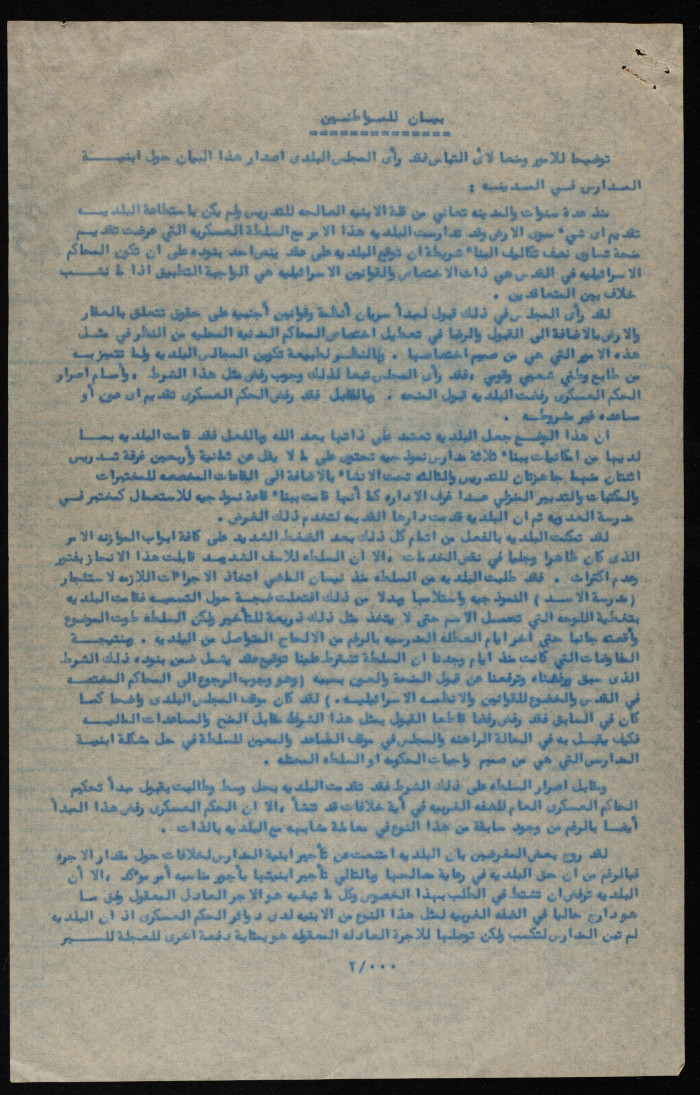 بيان للمواطنين
توضيحا للامور ومنعا لأى التباس فقد رأى المجلس البلدى اصدار هذا البيان حول ابنية
المدارس في المدينه :
منذ عدة سنوات والمدينه تعاني من قلة الابنيه الصالحه للتدريس ولم يكن باستطاعة البلديه
تقديم اى شي* سوى الارض وقد تدارست البلديه هذا الامر مع السلطة العسكريه التي عرضت تقديم
منحة تساوى نصف تكاليف البنا* شريطة ان توقع البلديه على عقد ينص احد بنوده على ان تكون المحاكم
الاسرائيليه في القدس هي ذات الاختصاص والقوانين الاسرائيليه هي الواجبة التطبيق اذا ما نشب
خلاف بين المتعاقدين .
لقد رأى المجلس في ذلك قبول لمبدأ سريان أنظمة وقوانين أجنبيه على حقوق تتعلق بالعقار
والارض بالاضافة الى القبول والرضا في تعطيل اختصاص المحاكم المدنيه المحليه من النظر في مثل
هذه الامور التي هي من صميم اختصاصها . وبالنظر لطبيعة تكوين المجالس البلديه ولما تتميز به
من طابع وطني شعبي وقومي ،فقد رأى المجلس تبعا لذلك وجوب رفض مثل هذا الشرط ،وأمام اصرار
الحكم العسكرى رفضت البلديه قبول المنحه . وبالمقابل فقد رفض الحكم العسكرى تقديم اى عون أو
مساعده غير مشروطه .
ان هذا الوضع جعل البلديه تعتمد على ذاتها بعد الله وبالفعل فقد قامت البلديه بما
لديها من امكانيات ببنا* ثلاثة مدارس نموذجيه تحتوى على ما لا يقل عن ثمانية وأربعين غرفة تدريس
اثنتان منهما جاهزتان للتدريس والثالثه تحت الانشا* بالاضافة الى القاعات المخصصه للمختبرات
والمكتبات والتدبير المنزلي عدا غرف الاداره كما أنها قامت ببنا* قاعة نموذجيه للاستعمال كمختبر في
مدرسة العدويه ثم ان البلديه قدمت دارها القديمه لتخدم ذلك الغرض.
لقد تمكنت البلديه بالفعل من اتمام كل ذلك بعد الضغط الشديد على كافة ابواب الموازنه الامر
الذى كان ظاهرا وجليا في نقص الخدمات ،الا ان السلطه للاسف الشديد قابلت هذا الانجاز بفتور
وعدم اكتراث . فقد طلبت البلديه من السلطه منذ نيسان الماضي اتخاذ الاجرا*ات اللازمه لاستئجار
( مدرسة الاسد ) النموذجيه واستلامها وبدلا من ذلك افتعلت ضجة حول التسميه فقامت البلديه
بتغطية اللوحه التي تحمل الاسم حتى لا يتخذ مثل ذلك ذريعة للتأخير ولكن السلطه طوت الموضوع
وأقصته جانبا حتى آخر ايام العطله المدرسيه بالرغم من الالحاح المتواصل من البلديه . ونتيجة
المفاوضات التي كانت منذ ايام وجدنا ان السلطة تشترط علينا توقيع عقد يشمل ضمن بنوده ذلك الشرط
الذى سبق ورفضناه وترفعنا عن قبول المنحة والعون بسببه (وهو وجوب الرجوع الى المحاكم المختصه
في القدس والخضوع للقوانين والانظمه الاسرائيليه .) لقد كان موقف المجلس البلدى واضحا كما
كان في السابق فقد رفض رفضا قاطعا القبول بمثل هذا الشرط مقابل المنح والمساعدات الماليه
فكيف يقبل به في الحالة الراهنه والمجلس في موقف المساعد والمعين للسلطة في حل مشكلة ابنية
المدارس التي هي من صميم واجبات الحكومه او السلطه المحتله .
ومقابل اصرار السلطه على ذلك الشرط فقد تقدمت البلديه بحل وسط وطالبت بقبول مبدأ تحكيم
الحاكم العسكرى العام للضفه الغربيه في أية خلافات قد تنشأ ،الا ان الحكم العسكرى رفض هذا المبدأ
أيضا بالرغم من وجود سابقة من هذا النوع في معاملة مشابهه مع البلديه بالذات .
لقد روج بعض المغرضين بان البلديه امتنعت عن تأجير ابنية المدارس لخلافات حول مقدار الاجره
فبالرغم من ان حق البلديه في رعاية مصالحها وبالتالي تأجير ابنيتها بأجور مناسبه أمر مؤكد ،الا أن
البلديه ترفض ان تشتط في الطلب بهذا الخصوص وكل ما تبغيه هو الاجر العادل المعقول وفق ما
هو دارج حاليا في الضفه الغربيه لمثل هذا النوع من الابنيه لدى دوائر الحكم العسكرى اذ ان البلديه
لم تبن المدارس لتكسب ولكن توصلها للاجرة العادله المعقوله هو بمثابة دفعة اخرى للعجلة للسير
٢/٠٠٠